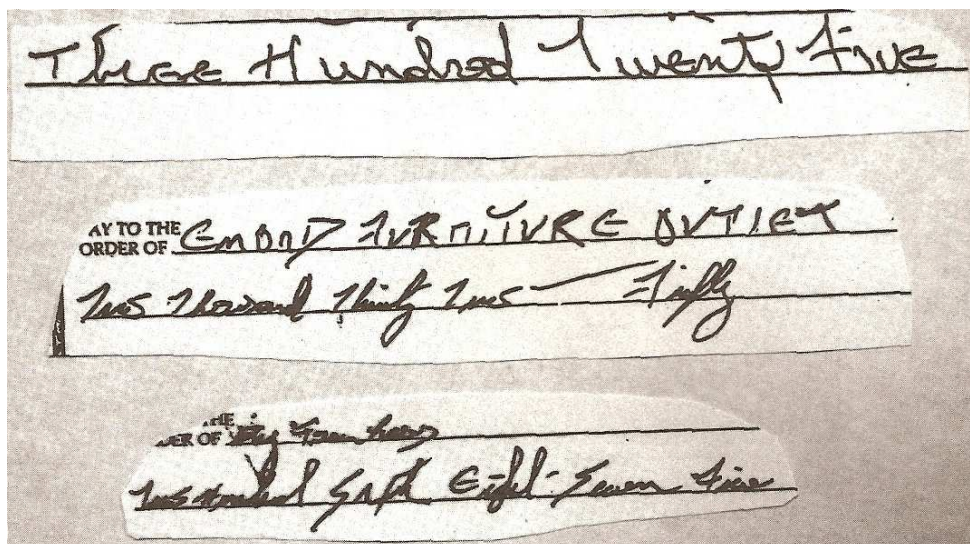 Three Hundred Twenty Five
AY TO THE
ORDER OF FURNITURE OUTLET
Two Thousand Thirty Two Fifty
HE
DER OF
Two Hundred Eight Seven Five